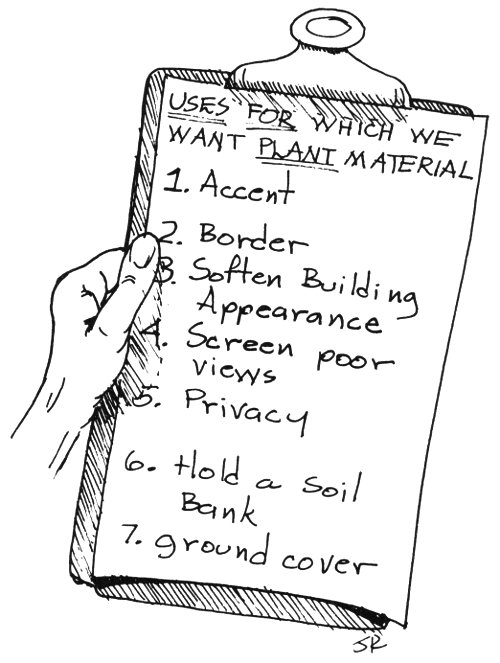 USES FOR WHICH WE
WANT PLANT MATERIAL
1. Accent
2. Border
3. Soften Building
Appearance
4. Screen poor
views
5. Privacy
6. Hold a Soil
Bank
7. ground cover
SR